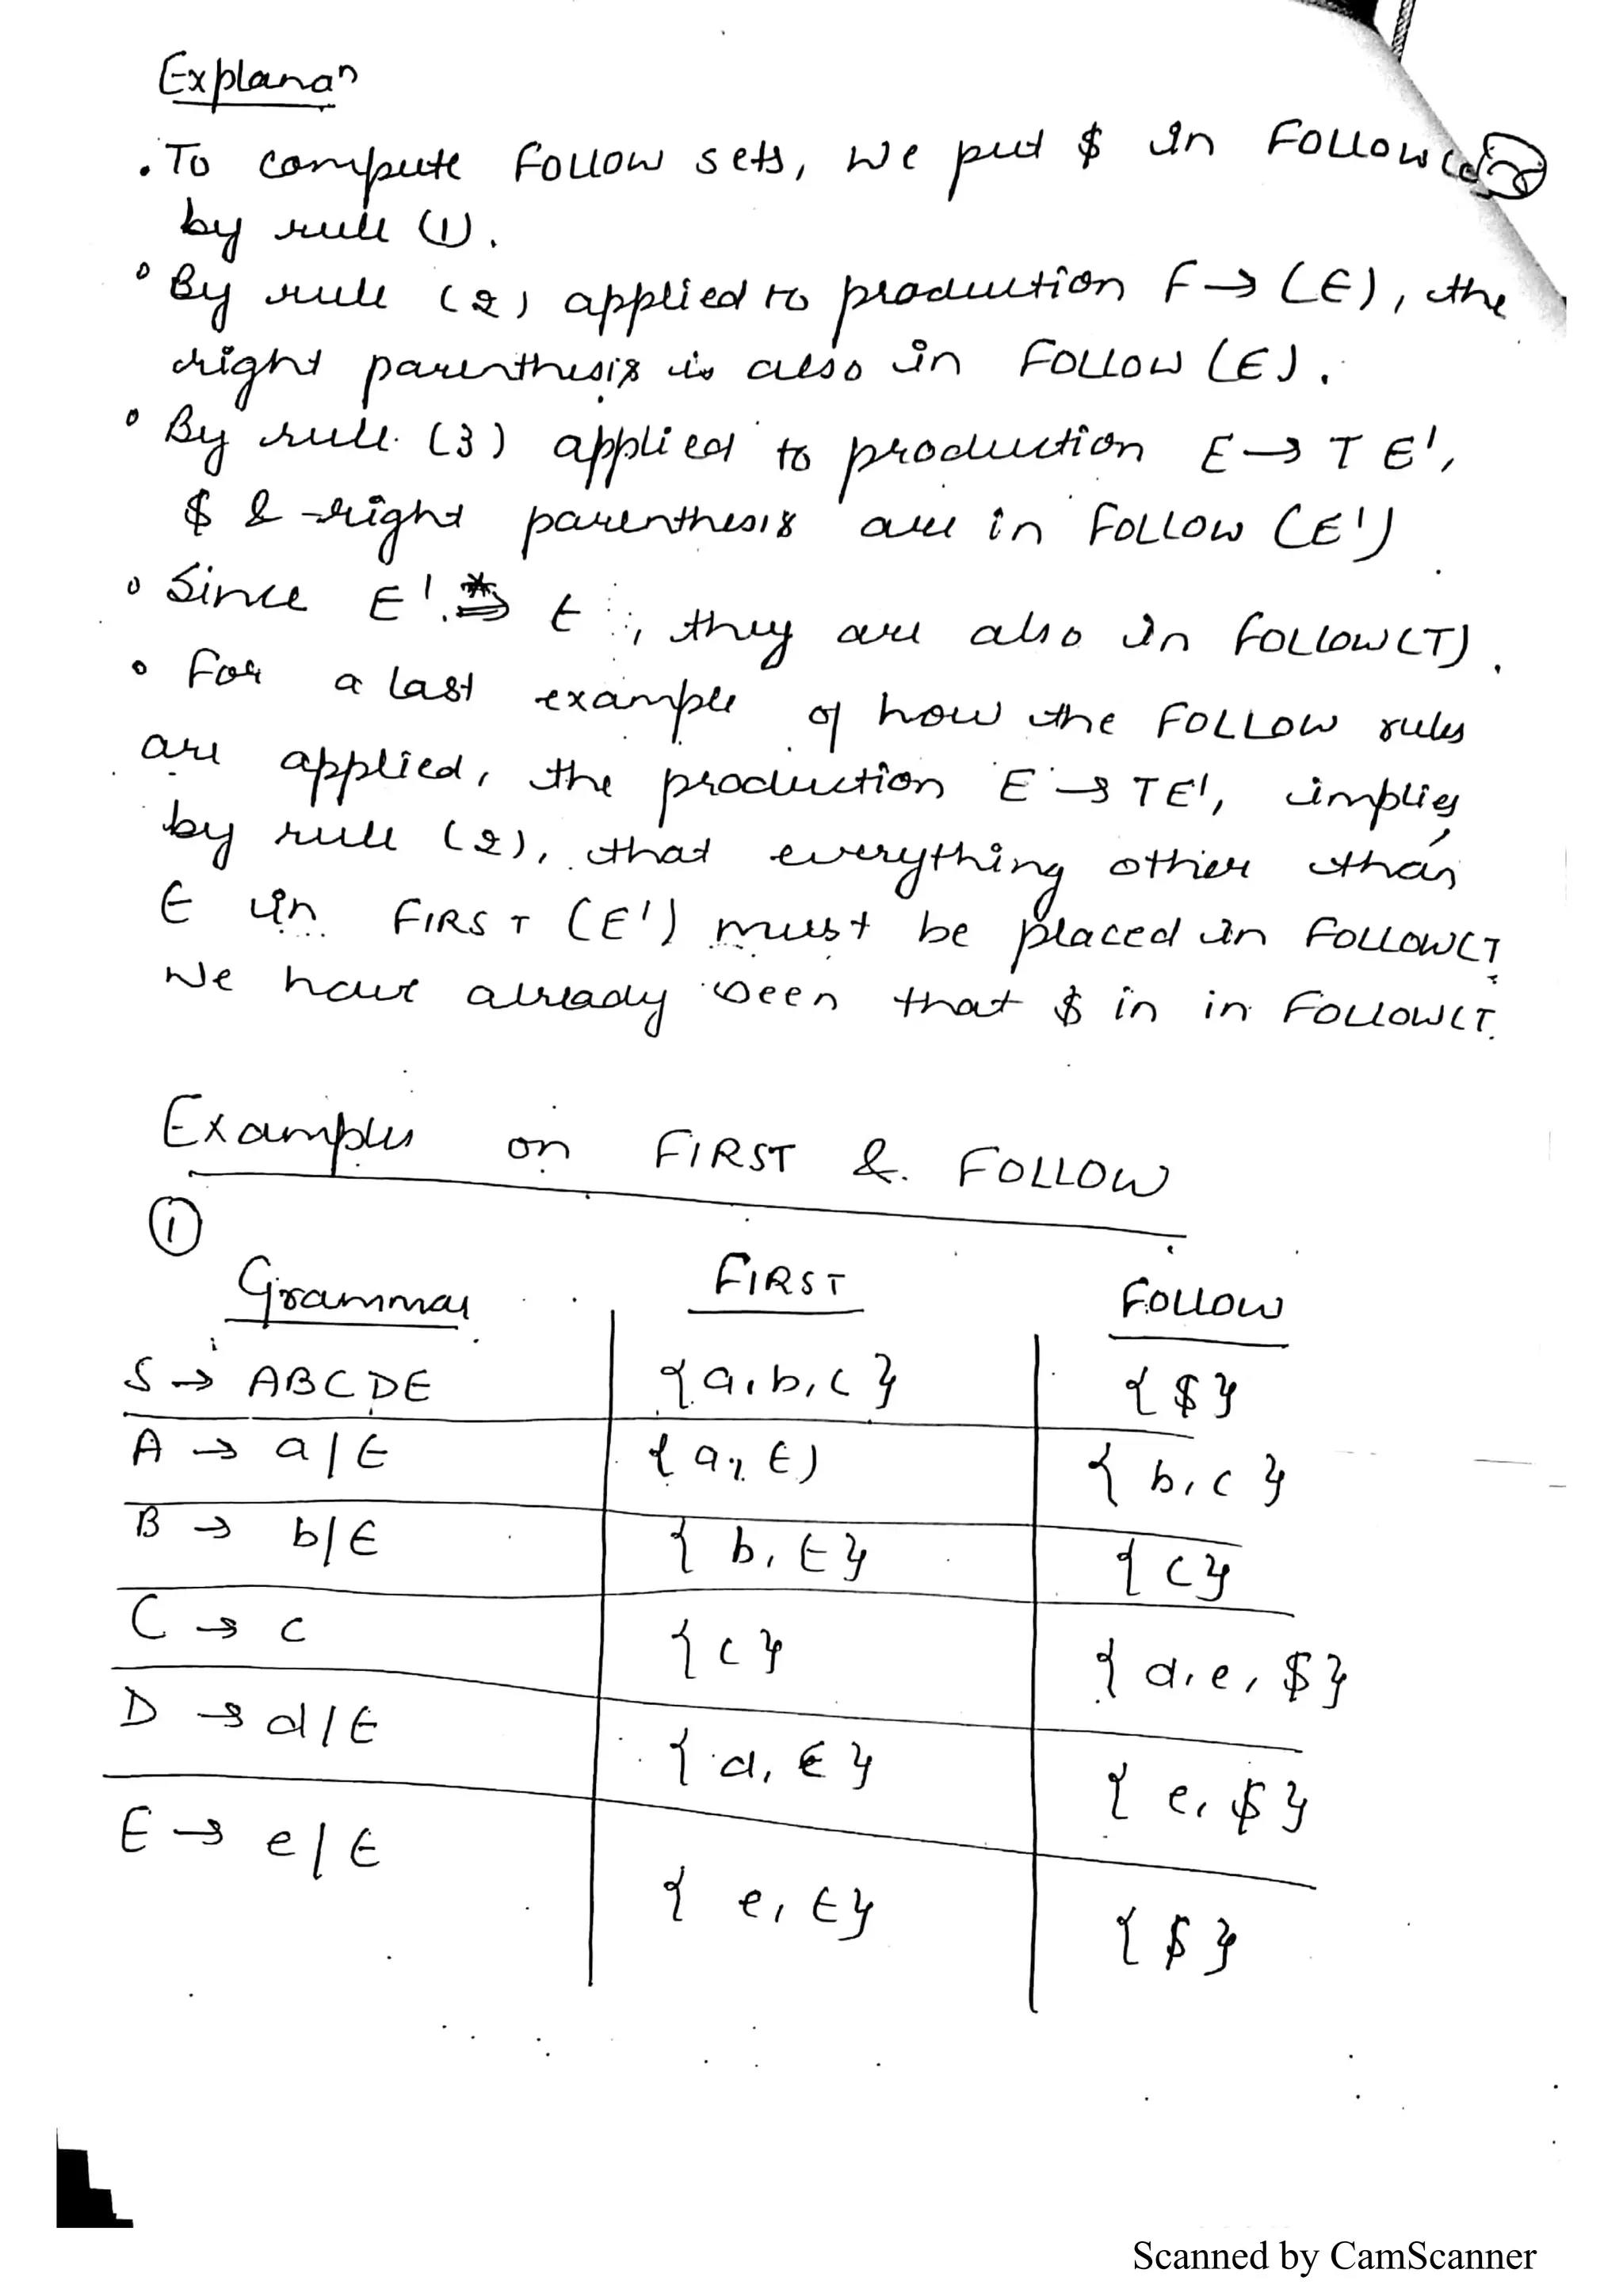 Explanaⁿ
• To compute FOLLOW sets, we put $ in FOLLOW
by rule (1).
• By rule (2) applied to production F → (E), the
right parenthesis is also in FOLLOW (E).
• By rule (3) applied to production E → T E',
$ & right parenthesis are in FOLLOW (E')
• Since E' *⇒ ϵ, they are also in FOLLOW(T).
• For a last example of how the FOLLOW rules
are applied, the production E → TE', implies,
by rule (2), that everything other than
ϵ in FIRST (E') must be placed in FOLLOW(T
We have already seen that $ in in FOLLOW(T.
Examples on FIRST & FOLLOW
①
Grammar FIRST FOLLOW
S → ABCDE {a,b,c} {$}
A → a/ϵ {a, ϵ) {b,c}
B → b/ϵ {b,ϵ} {c}
C → c {c} {d,e,$}
D → d/ϵ {d,ϵ} {e,$}
E → e/ϵ {e,ϵ} {$}
Scanned by CamScanner